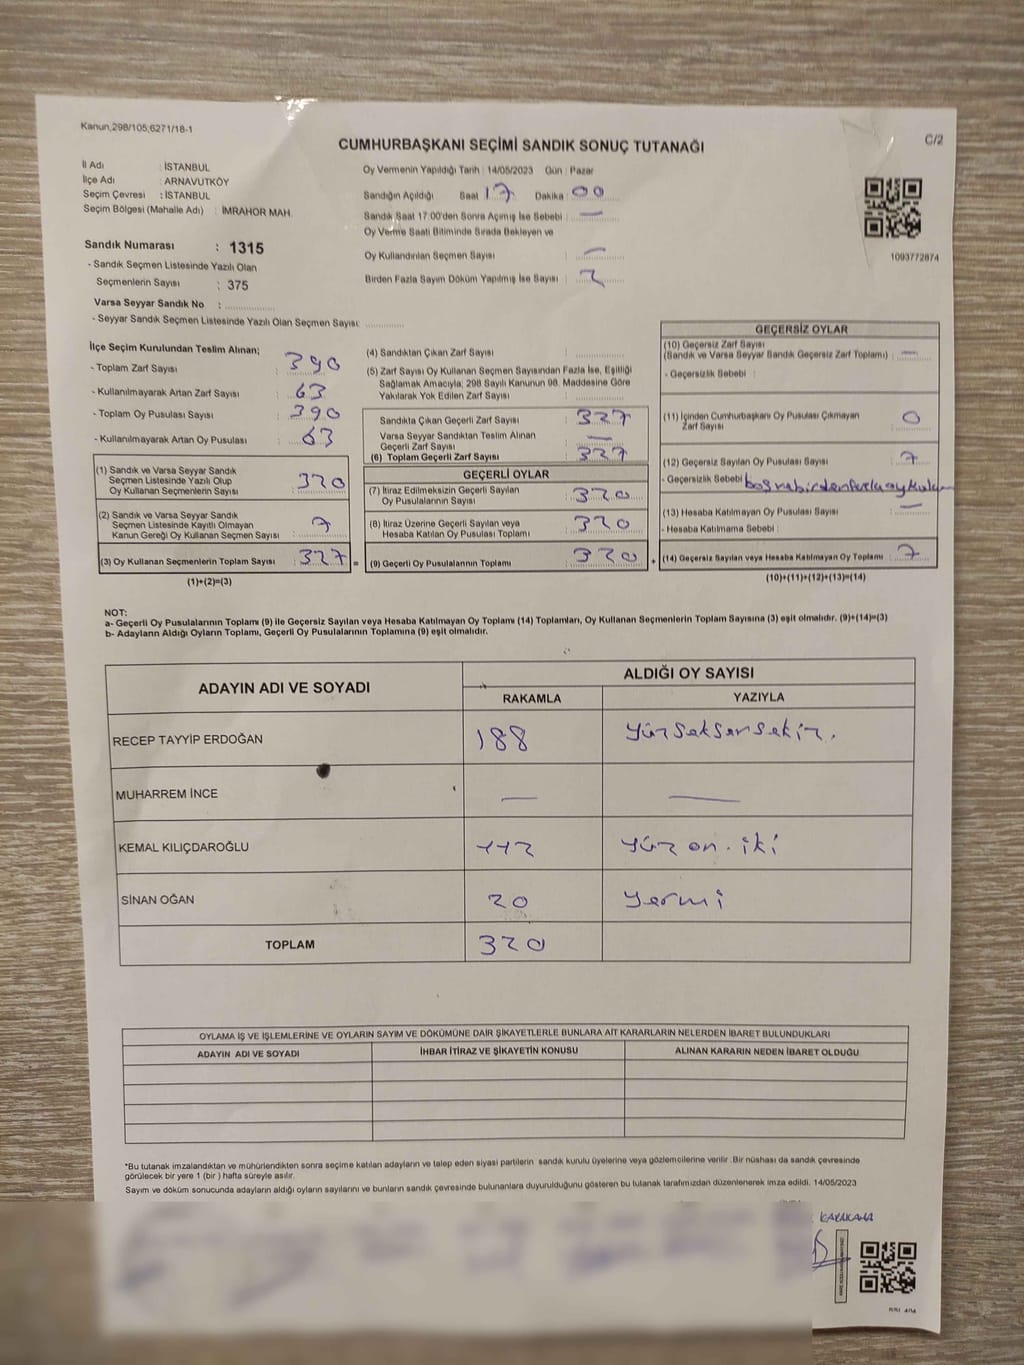 Kanun,298/105,6271/18-1
C/2
CUMHURBAŞKANI SEÇİMİ SANDIK SONUÇ TUTANAĞI
İl Adı : İSTANBUL
İlçe Adı : ARNAVUTKÖY
Seçim Çevresi : İSTANBUL
Seçim Bölgesi (Mahalle Adı) : İMRAHOR MAH.
Sandık Numarası : 1315
- Sandık Seçmen Listesinde Yazılı Olan
Seçmenlerin Sayısı : 375
Varsa Seyyar Sandık No :
- Seyyar Sandık Seçmen Listesinde Yazılı Olan Seçmen Sayısı:
Oy Vermenin Yapıldığı Tarih : 14/05/2023 Gün : Pazar
Sandığın Açıldığı Saat 17 Dakika : 00
Sandık Saat 17:00'den Sonra Açımış İse Sebebi : —
Oy Verme Saati Bitiminde Sırada Bekleyen ve
Oy Kullandırılan Seçmen Sayısı : —
Birden Fazla Sayım Döküm Yapılmış İse Sayısı : 2
1093772874
İlçe Seçim Kurulundan Teslim Alınan;
- Toplam Zarf Sayısı : 390
- Kullanılmayarak Artan Zarf Sayısı : 63
- Toplam Oy Pusulası Sayısı : 390
- Kullanılmayarak Artan Oy Pusulası : 63
(1) Sandık ve Varsa Seyyar Sandık
Seçmen Listesinde Yazılı Olup
Oy Kullanan Seçmenlerin Sayısı : 320
(2) Sandık ve Varsa Seyyar Sandık
Seçmen Listesinde Kayıtlı Olmayan
Kanun Gereği Oy Kullanan Seçmen Sayısı : 7
(3) Oy Kullanan Seçmenlerin Toplam Sayısı : 327 =
(1)+(2)=(3)
(4) Sandıktan Çıkan Zarf Sayısı :
(5) Zarf Sayısı Oy Kullanan Seçmen Sayısından Fazla İse, Eşitliği
Sağlamak Amacıyla, 298 Sayılı Kanunun 98. Maddesine Göre
Yakılarak Yok Edilen Zarf Sayısı :
Sandıkta Çıkan Geçerli Zarf Sayısı : 327
Varsa Seyyar Sandıktan Teslim Alınan
Geçerli Zarf Sayısı : —
(6) Toplam Geçerli Zarf Sayısı : 327
GEÇERLİ OYLAR
(7) İtiraz Edilmeksizin Geçerli Sayılan
Oy Pusulalarının Sayısı : 320
(8) İtiraz Üzerine Geçerli Sayılan veya
Hesaba Katılan Oy Pusulası Toplamı : 320
(9) Geçerli Oy Pusulalarının Toplamı : 320 +
GEÇERSİZ OYLAR
(10) Geçersiz Zarf Sayısı
(Sandık ve Varsa Seyyar Sandık Geçersiz Zarf Toplamı) : —
- Geçersizlik Sebebi :
(11) İçinden Cumhurbaşkanı Oy Pusulası Çıkmayan
Zarf Sayısı : 0
(12) Geçersiz Sayılan Oy Pusulası Sayısı : 7
- Geçersizlik Sebebi
(13) Hesaba Katılmayan Oy Pusulası Sayısı : —
- Hesaba Katılmama Sebebi :
(14) Geçersiz Sayılan veya Hesaba Katılmayan Oy Toplamı : 7
(10)+(11)+(12)+(13)=(14)
NOT:
a- Geçerli Oy Pusulalarının Toplamı (9) ile Geçersiz Sayılan veya Hesaba Katılmayan Oy Toplamı (14) Toplamları, Oy Kullanan Seçmenlerin Toplam Sayısına (3) eşit olmalıdır. (9)+(14)=(3)
b- Adayların Aldığı Oyların Toplamı, Geçerli Oy Pusulalarının Toplamına (9) eşit olmalıdır.
ADAYIN ADI VE SOYADI ALDIĞI OY SAYISI
RAKAMLA YAZIYLA
RECEP TAYYİP ERDOĞAN 188 Yüz seksen sekiz.
MUHARREM İNCE — —
KEMAL KILIÇDAROĞLU 112 Yüz on. iki
SİNAN OĞAN 20 Yermi
TOPLAM 320
OYLAMA İŞ VE İŞLEMLERİNE VE OYLARIN SAYIM VE DÖKÜMÜNE DAİR ŞİKAYETLERLE BUNLARA AİT KARARLARIN NELERDEN İBARET BULUNDUKLARI
ADAYIN ADI VE SOYADI İHBAR İTİRAZ VE ŞİKAYETİN KONUSU ALINAN KARARIN NEDEN İBARET OLDUĞU
*Bu tutanak imzalandıktan ve mühürlendikten sonra seçime katılan adayların ve talep eden siyasi partilerin sandık kurulu üyelerine veya gözlemcilerine verilir. Bir nüshası da sandık çevresinde
görülecek bir yere 1 (bir) hafta süreyle asılır.
Sayım ve döküm sonucunda adayların aldığı oyların sayılarını ve bunların sandık çevresinde bulunanlara duyurulduğunu gösteren bu tutanak tarafımızdan düzenlenerek imza edildi. 14/05/2023
KARAKAYA